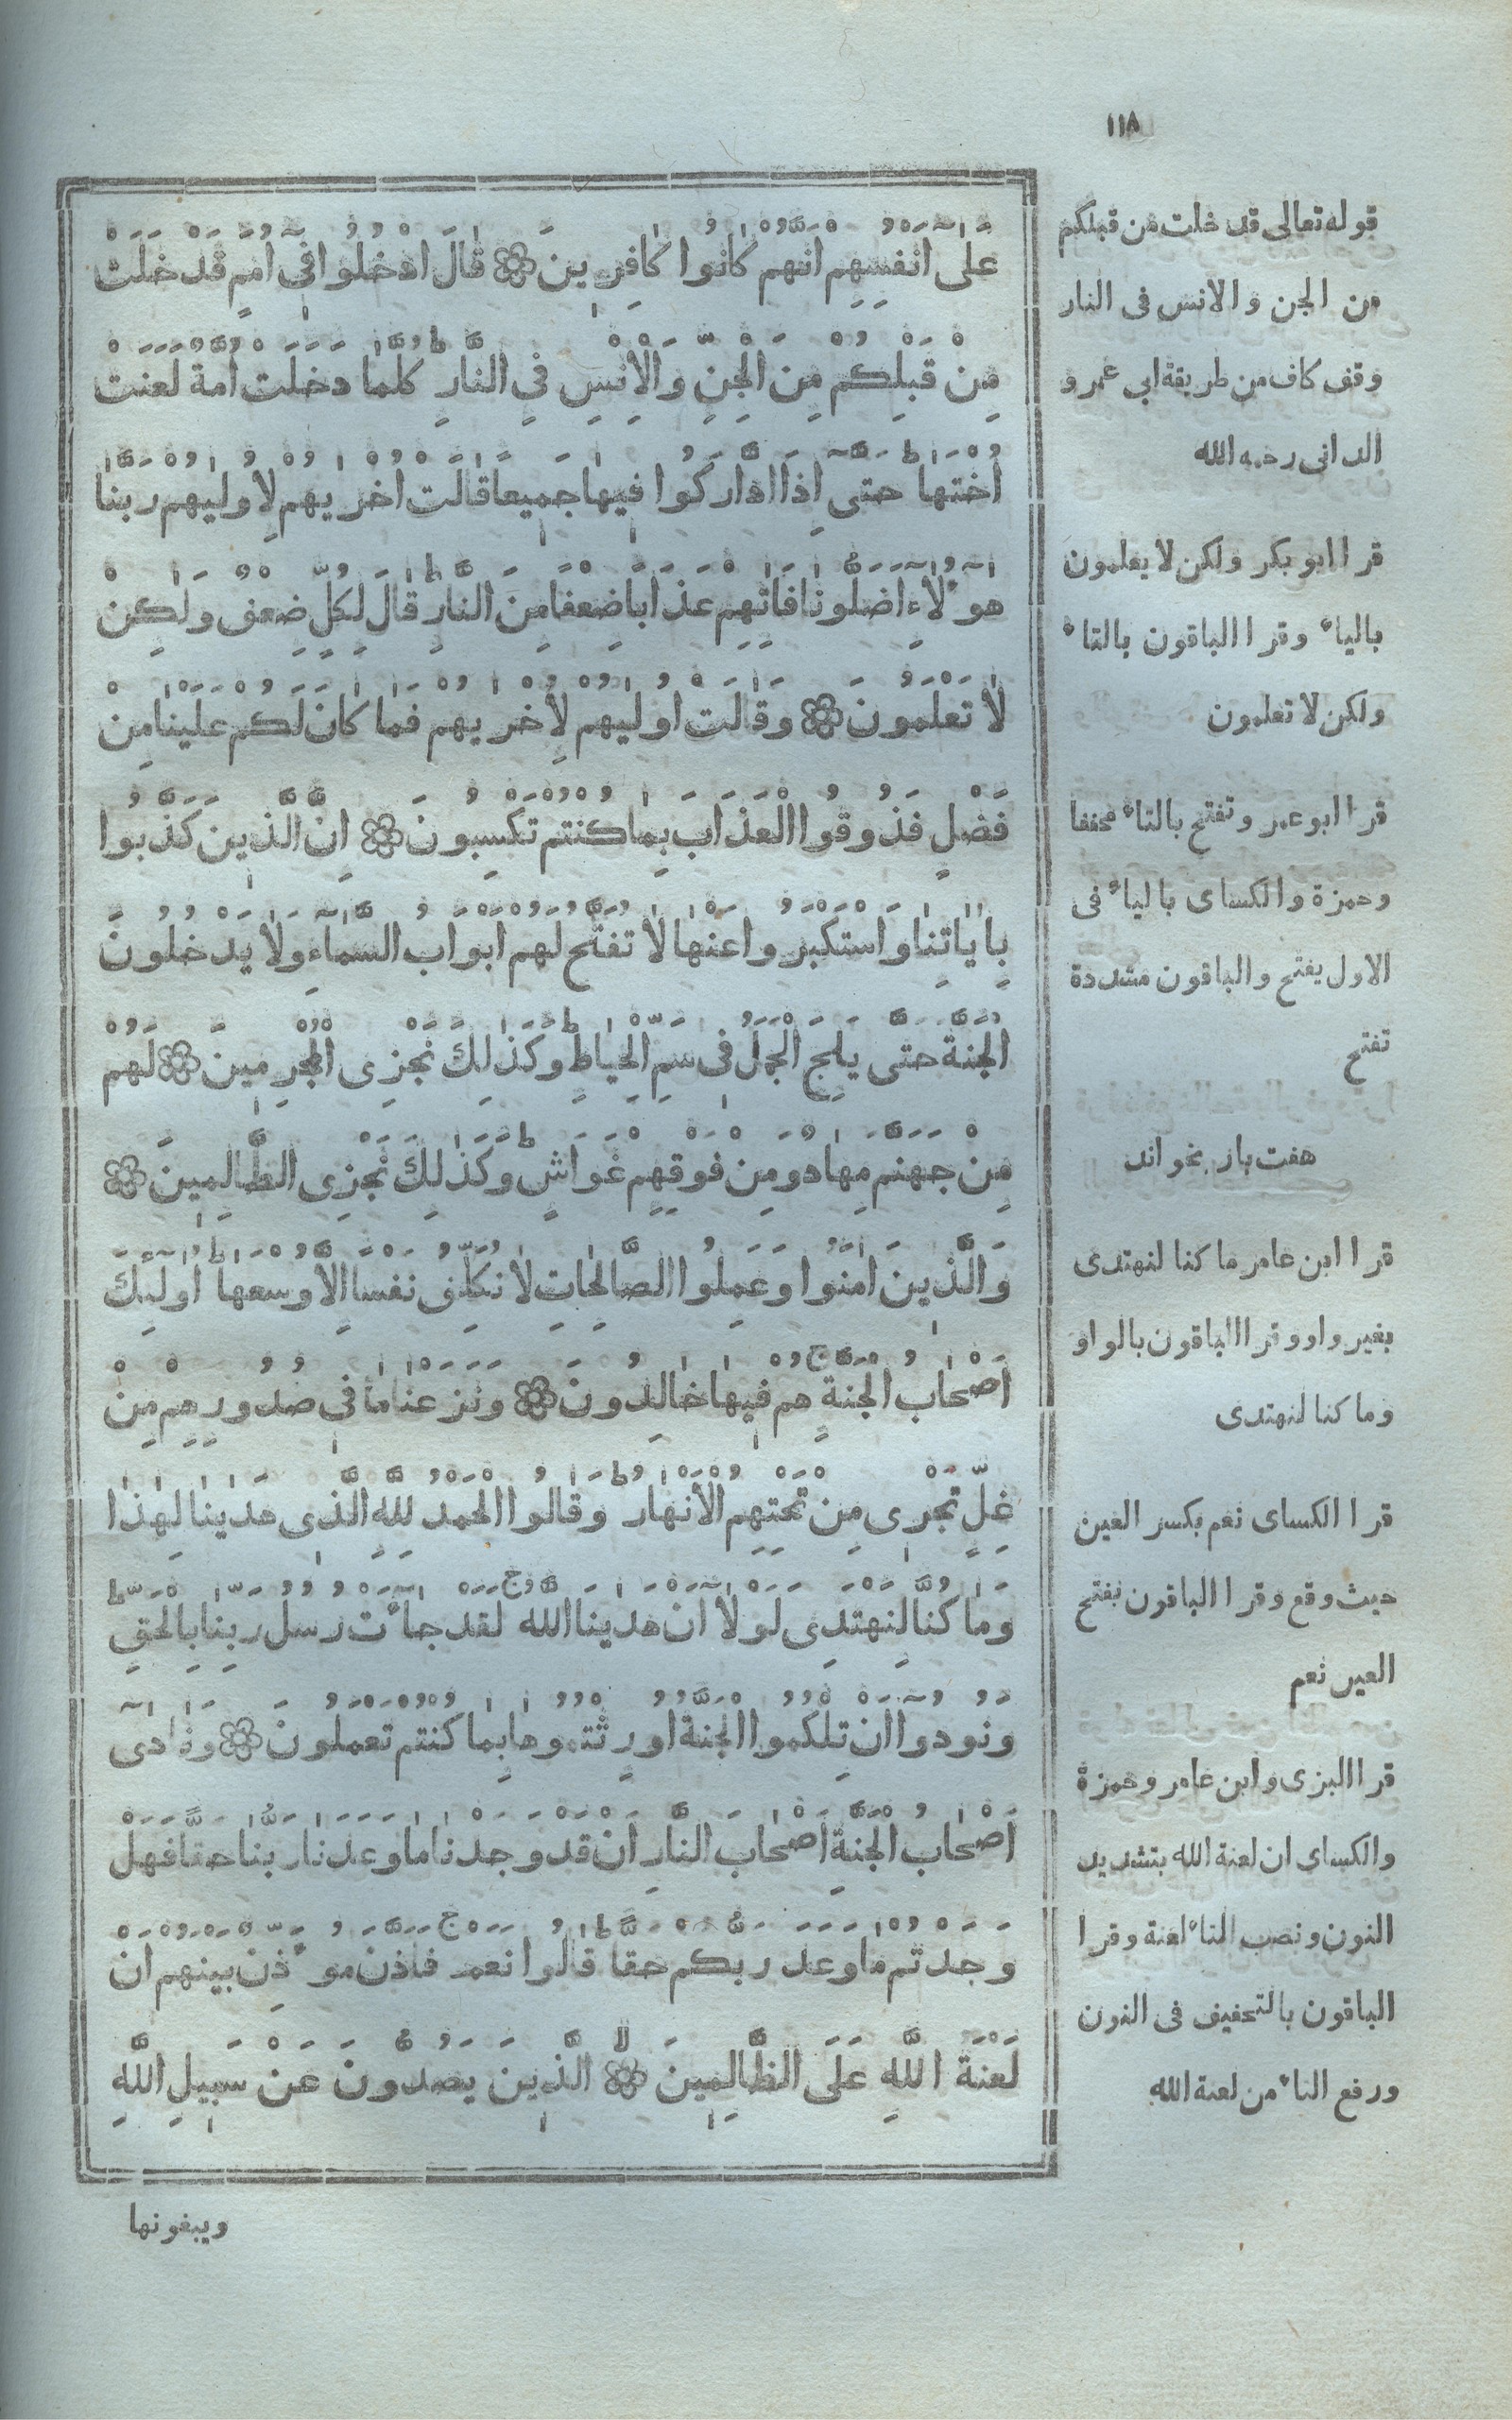 ١١٨
عَلَىٰ اَنْفُسِهِمْ اَنَّهُمْ كَانُوا كَافِرِينَ ۞ قَالَ ادْخُلُوا فِىٓ اُمَمٍ قَدْ خَلَتْ
مِنْ قَبْلِكُمْ مِنَ الْجِنِّ وَالْاِنْسِ فِى النَّارِ ط كُلَّمَا دَخَلَتْ اُمَّةٌ لَعَنَتْ
اُخْتَهَا ط حَتَّىٓ اِذَا ادَّارَكُوا فِيهَا جَمِيعًا قَالَتْ اُخْرٰيهُمْ لِاُولٰيهُمْ رَبَّنَا
هٰٓوُٴلَآءِ اَضَلُّونَا فَاٰتِهِمْ عَذَابًا ضِعْفًا مِنَ النَّارِ ط قَالَ لِكُلٍّ ضِعْفٌ وَلٰكِنْ
لَا تَعْلَمُونَ ۞ وَقَالَتْ اُولٰيهُمْ لِاُخْرٰيهُمْ فَمَا كَانَ لَكُمْ عَلَيْنَا مِنْ
فَضْلٍ فَذُوقُوا الْعَذَابَ بِمَا كُنْتُمْ تَكْسِبُونَ ۞ اِنَّ الَّذِينَ كَذَّبُوا
بِاٰيَاتِنَا وَاسْتَكْبَرُوا عَنْهَا لَا تُفَتَّحُ لَهُمْ اَبْوَابُ السَّمَآءِ وَلَا يَدْخُلُونَ
الْجَنَّةَ حَتَّى يَلِجَ الْجَمَلُ فِى سَمِّ الْخِيَاطِ ط وَكَذٰلِكَ نَجْزِى الْمُجْرِمِينَ ۞ لَهُمْ
مِنْ جَهَنَّمَ مِهَادٌ وَمِنْ فَوْقِهِمْ غَوَاشٍ ط وَكَذٰلِكَ نَجْزِى الظَّالِمِينَ ۞
وَالَّذِينَ اٰمَنُوا وَعَمِلُوا الصَّالِحَاتِ لَا نُكَلِّفُ نَفْسًا اِلَّا وُسْعَهَا ط اُولٰٓئِكَ
اَصْحَابُ الْجَنَّةِ ج هُمْ فِيهَا خَالِدُونَ ۞ وَنَزَعْنَا مَا فِى صُدُورِهِمْ مِنْ
غِلٍّ تَجْرِى مِنْ تَحْتِهِمُ الْاَنْهَارُ ط وَقَالُوا الْحَمْدُ لِلّٰهِ الَّذِى هَدٰينَا لِهٰذَا
وَمَا كُنَّا لِنَهْتَدِىَ لَوْلَآ اَنْ هَدٰينَا اللّٰهُ ج لَقَدْ جَآٴَتْ رُسُلُ رَبِّنَا بِالْحَقِّ ط
وَنُودُوٓا اَنْ تِلْكُمُ الْجَنَّةُ اُورِثْتُمُوهَا بِمَا كُنْتُمْ تَعْمَلُونَ ۞ وَنَادَىٓ
اَصْحَابُ الْجَنَّةِ اَصْحَابَ النَّارِ اَنْ قَدْ وَجَدْنَا مَا وَعَدَنَا رَبُّنَا حَقًّا فَهَلْ
وَجَدْتُمْ مَا وَعَدَ رَبُّكُمْ حَقًّا ط قَالُوا نَعَمْ ج فَاَذَّنَ مُوٴَذِّنٌ بَيْنَهُمْ اَنْ
لَعْنَةُ اللّٰهِ عَلَى الظَّالِمِينَ لا ۞ الَّذِينَ يَصُدُّونَ عَنْ سَبِيلِ اللّٰهِ
ويبغونها
قوله تعالى قد خلت من قبلكم
من الجن والانس فى النار
وقف كاف من طريقة ابى عمرو
الدانى رحمه الله
قرا ابو بكر ولكن لا يعلمون
بالياء وقرا الباقون بالتاء
ولكن لا تعلمون
قرا ابو عمر وتفتح بالتاء مخففا
وحمزة والكساى بالياء فى
الاول يفتح والباقون مشددة
تفتح
هفت بار بخواند
قرا ابن عامر ما كنا لنهتدى
بغير واو وقرا الباقون بالواو
وما كنا لنهتدى
قرا الكساى نعم بكسر العين
حيث وقع وقرا الباقون بفتح
العين نعم
قرا البزى وابن عامر وحمزة
والكساى ان لعنة الله بتشديد
النون ونصب التاء لعنة وقرا
الباقون بالتخفيف فى النون
ورفع التاء من لعنة الله